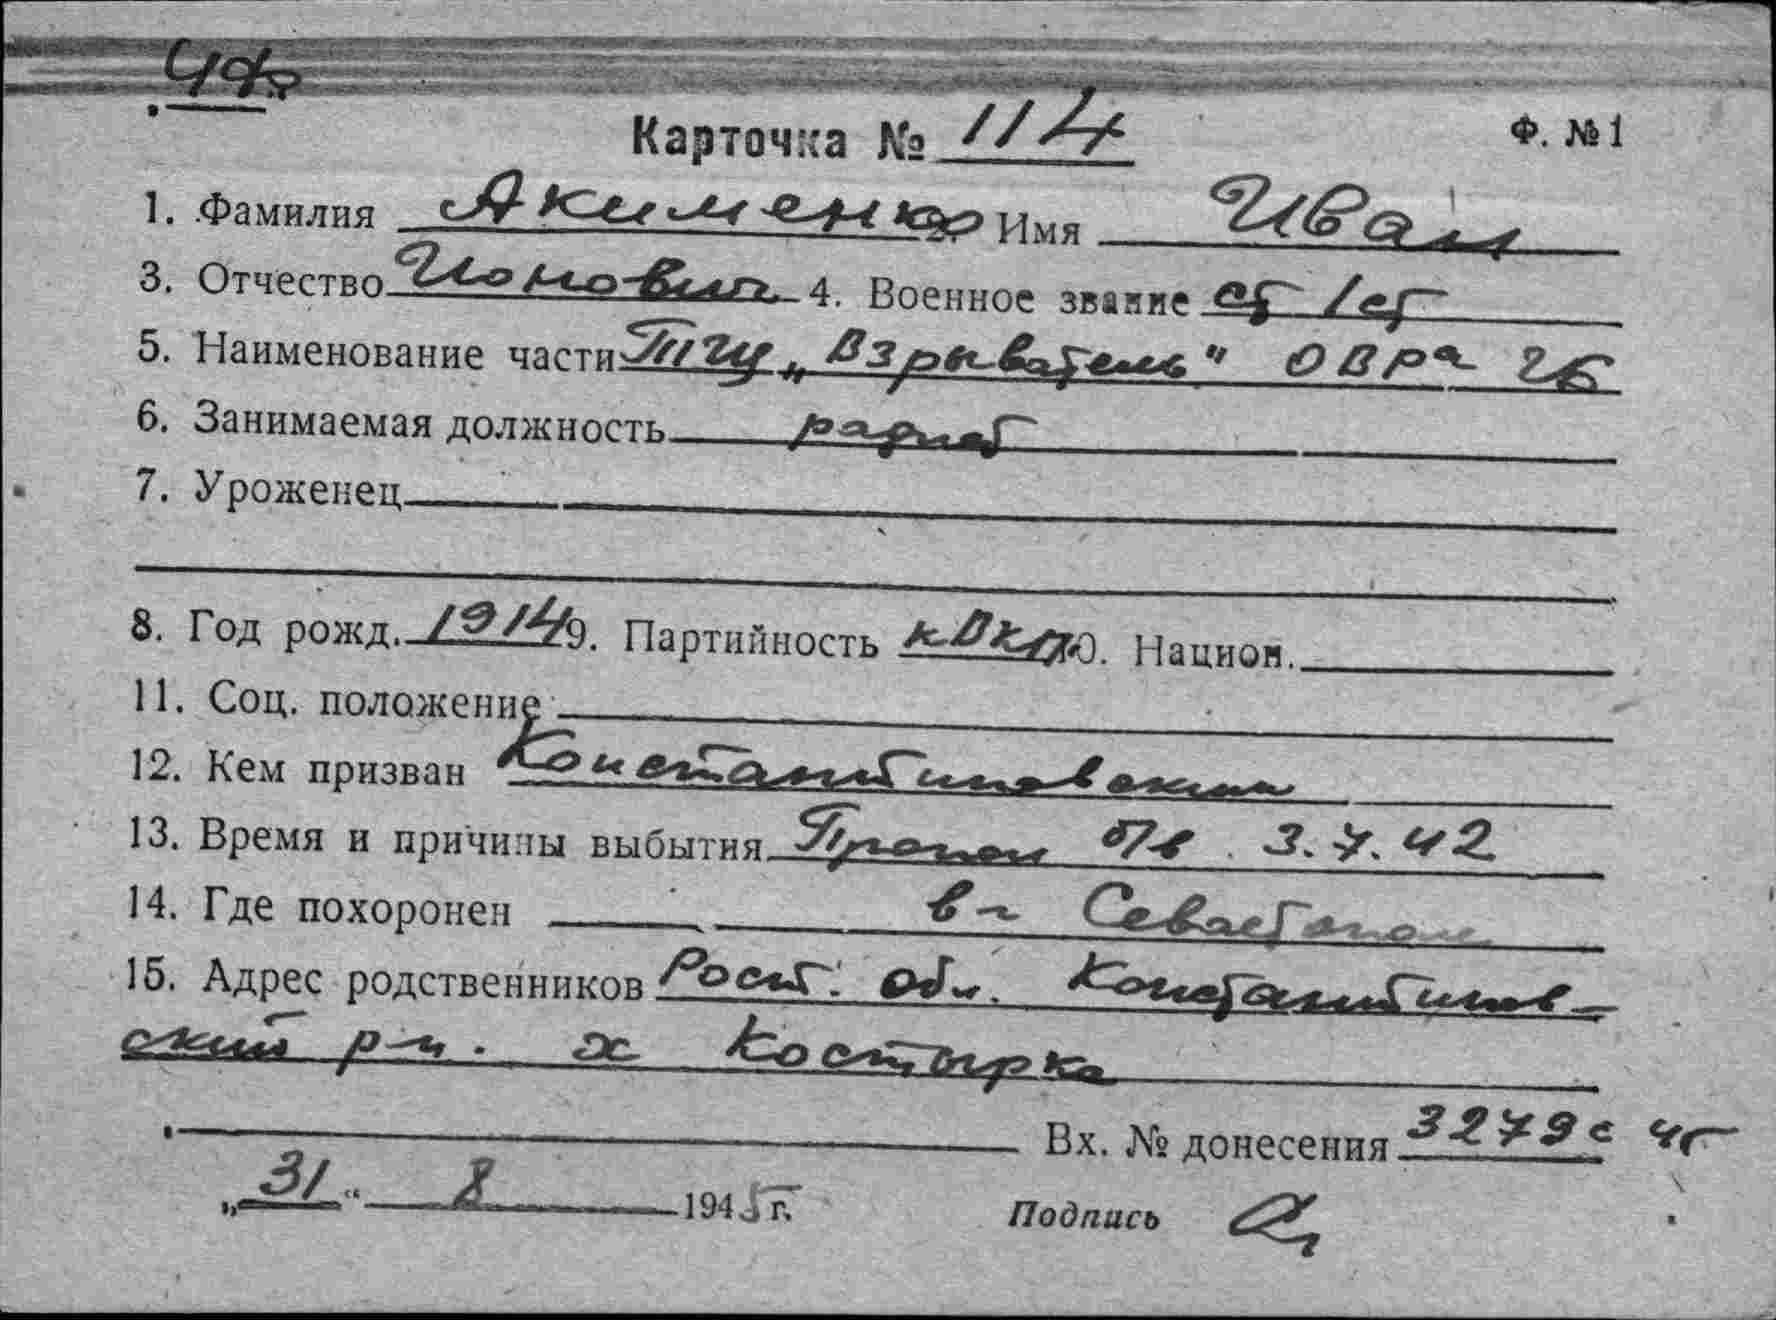 чф
Карточка № 114 Ф. №1
1. Фамилия Акименко 2. Имя Иван
3. Отчество Ионович 4. Военное звание ст 1 ст
5. Наименование части ТЩ „Взрыватель" ОВРа
6. Занимаемая должность радист
7. Уроженец
8. Год рожд. 1914 9. Партийность кВКП 10. Национ.
11. Соц. положение
12. Кем призван Константиновским
13. Время и причины выбытия Пропал б/в 3.7.42
14. Где похоронен в г Севастополе
15. Адрес родственников Рост. обл. Константинов-
ский р-н. х Костырка
Вх. № донесения 3279с 45
„31" 8 1945 г. Подпись